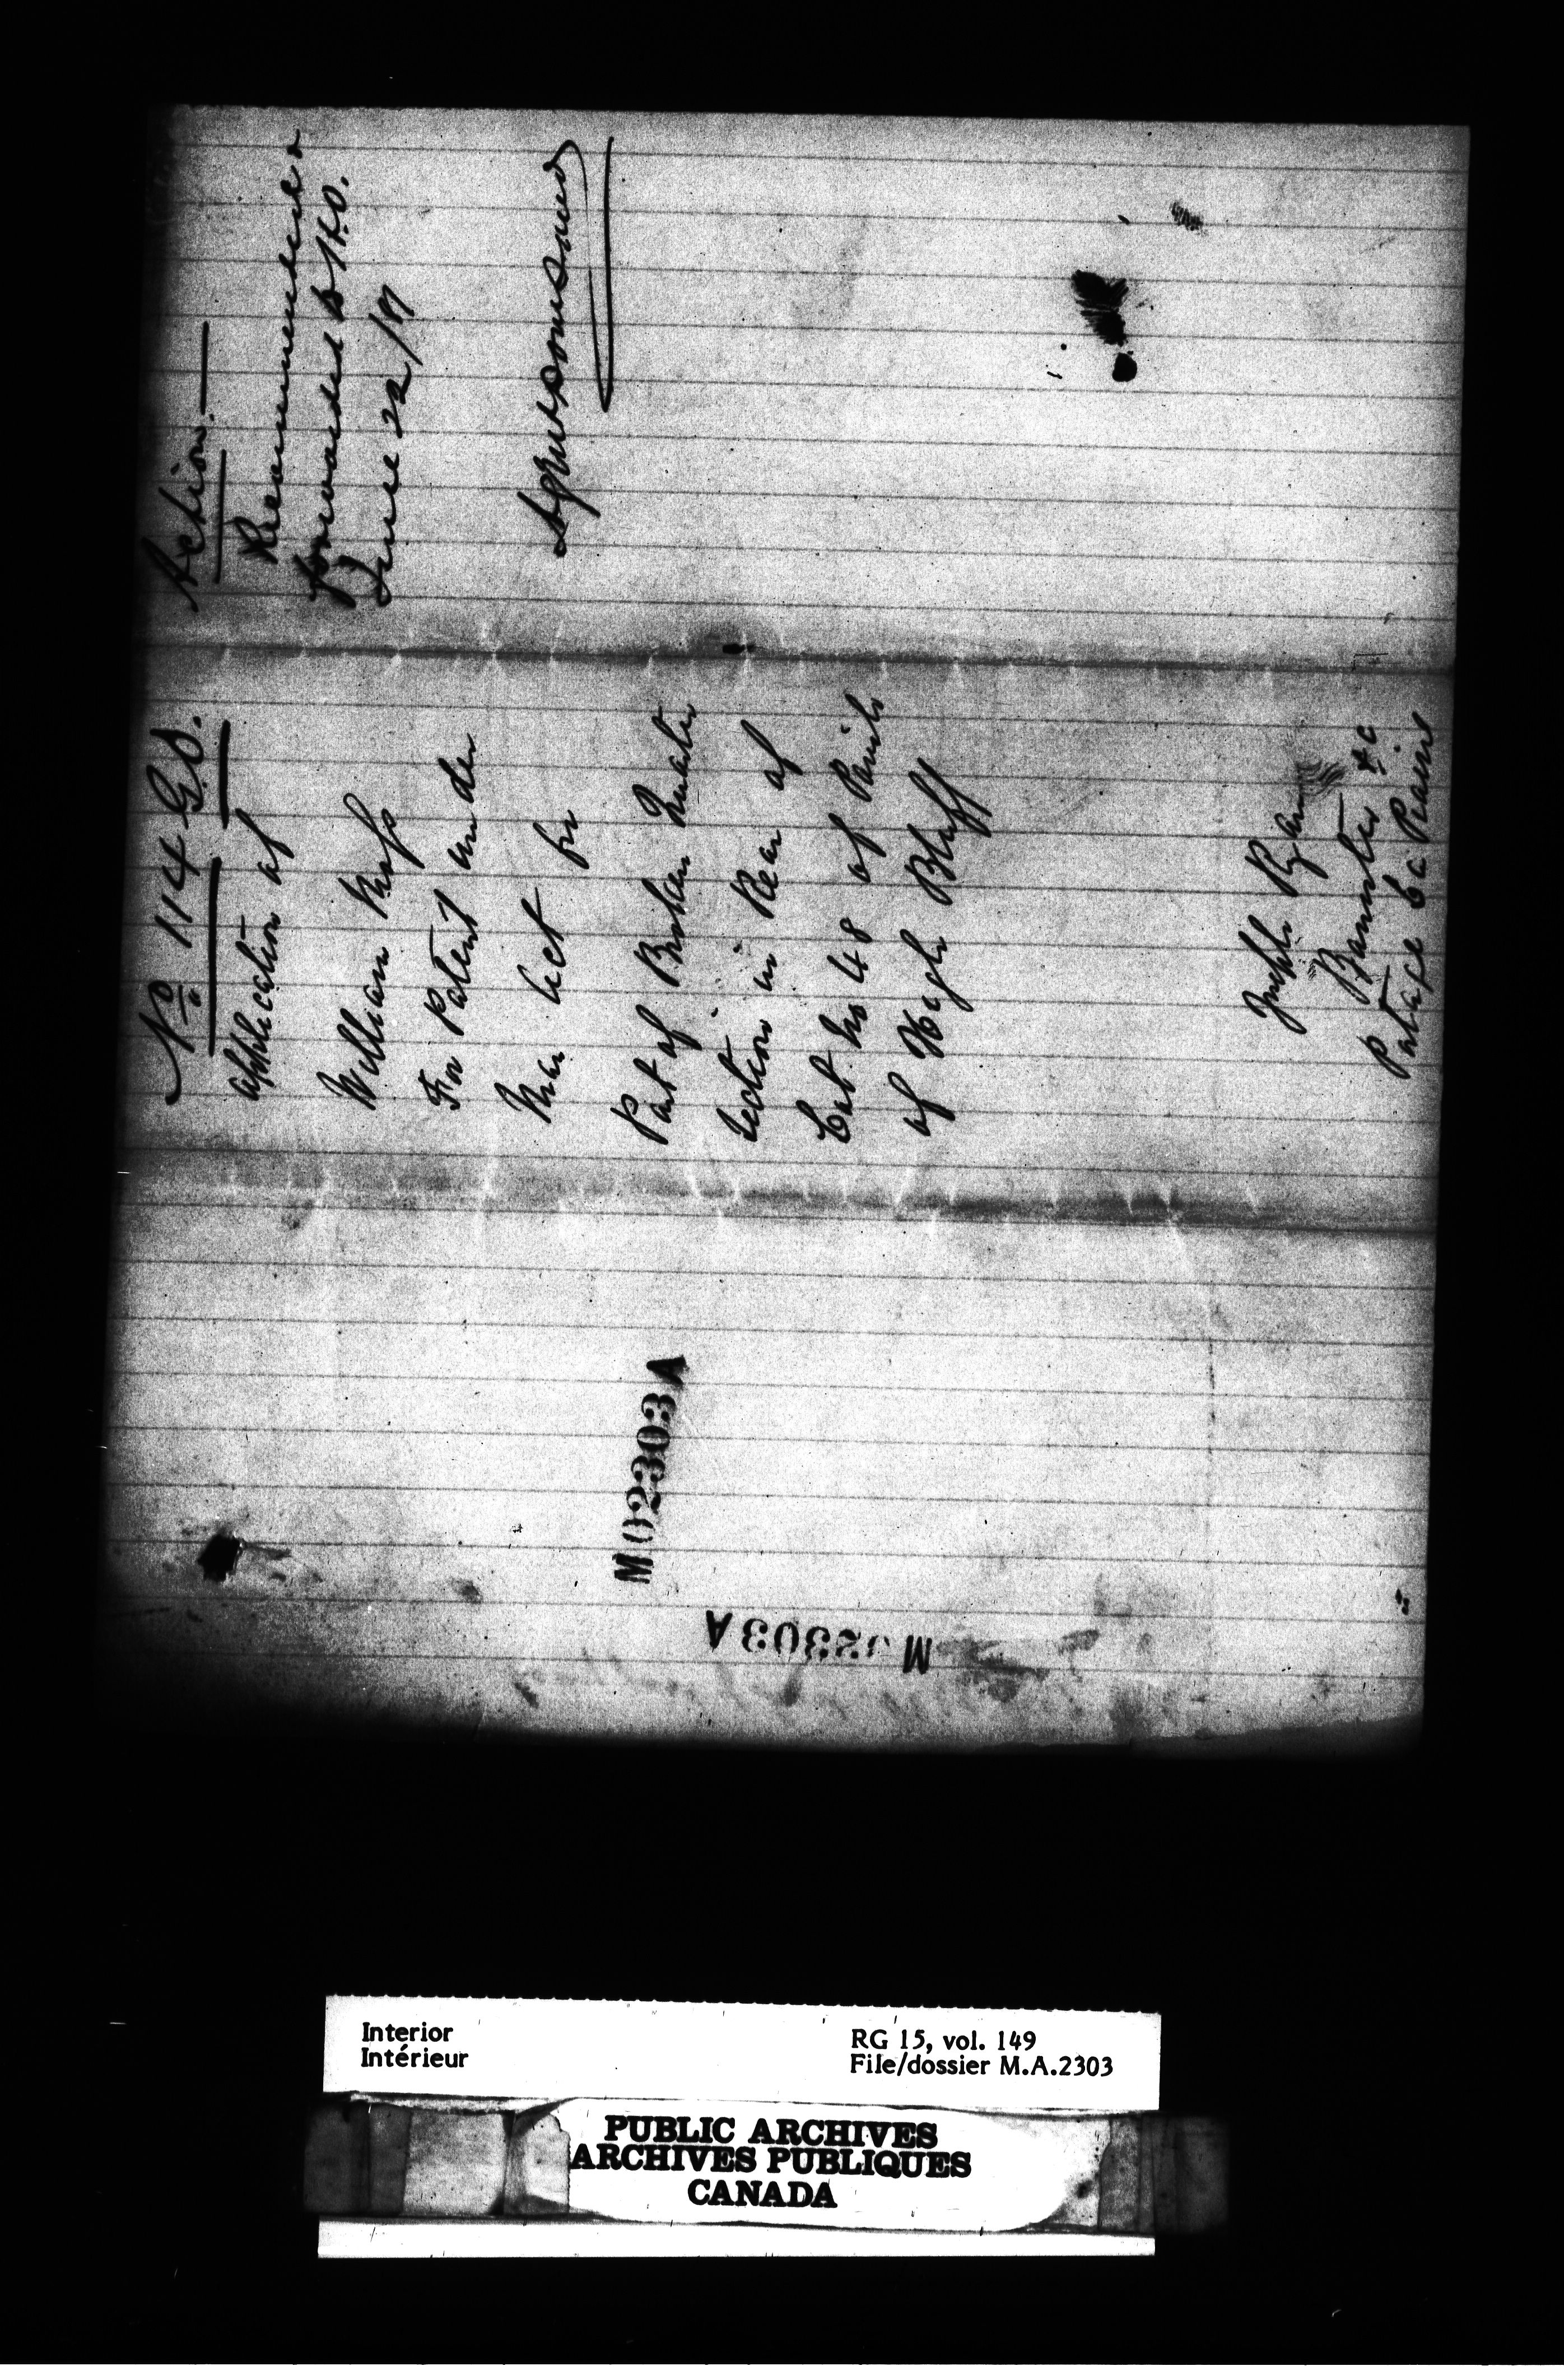 No 114 G.O.
Application of
William Moss
For Patent under
Man Act for
Part of Broken Quarter
Section in Rear of
Lot No 48 of Parish
of High Bluff
Joseph Ryan
Barrister &c
Portage La Prairie
Action.—
Recommended &
forwarded to H.O.
June 22/81
M02303A
M 2303A
Interior
Intérieur
RG 15, vol. 149
File/dossier M.A.2303
PUBLIC ARCHIVES
ARCHIVES PUBLIQUES
CANADA